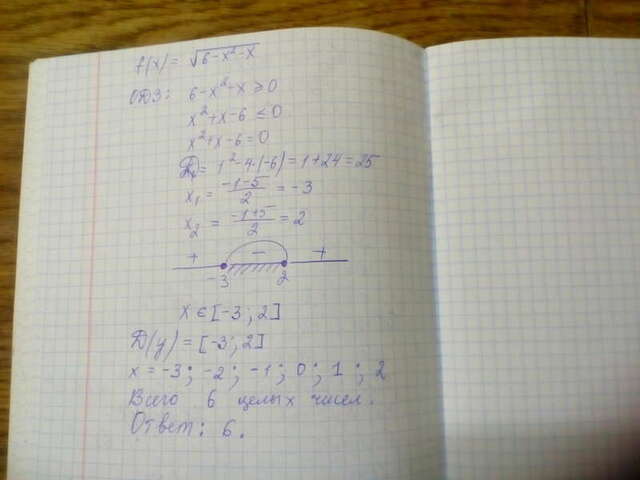 f(x) = √(6-x²-x)
ОДЗ: 6-x²-x ≥ 0
x²+x-6 ≤ 0
x²+x-6=0
D = 1²-4·(-6) = 1+24 = 25
x₁ = (-1-5)/2 = -3
x₂ = (-1+5)/2 = 2
+ - +
-3 2
x ∈ [-3; 2]
D(y) = [-3; 2]
x = -3; -2; -1; 0; 1; 2
Всего 6 целых чисел.
Ответ: 6.